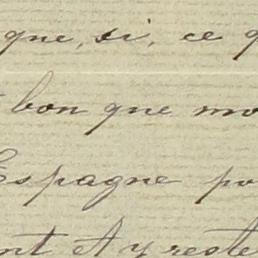 que, si, ce q
bon que mo
Espagne po
nt et y reste